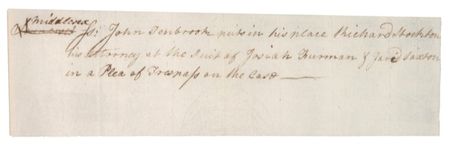 Middlesex
ss: John Denbrook puts in his place Richard Stockton
his Attorney at the Suit of Josiah Furman & Jared Saxton
in a Plea of Trespass on the Case